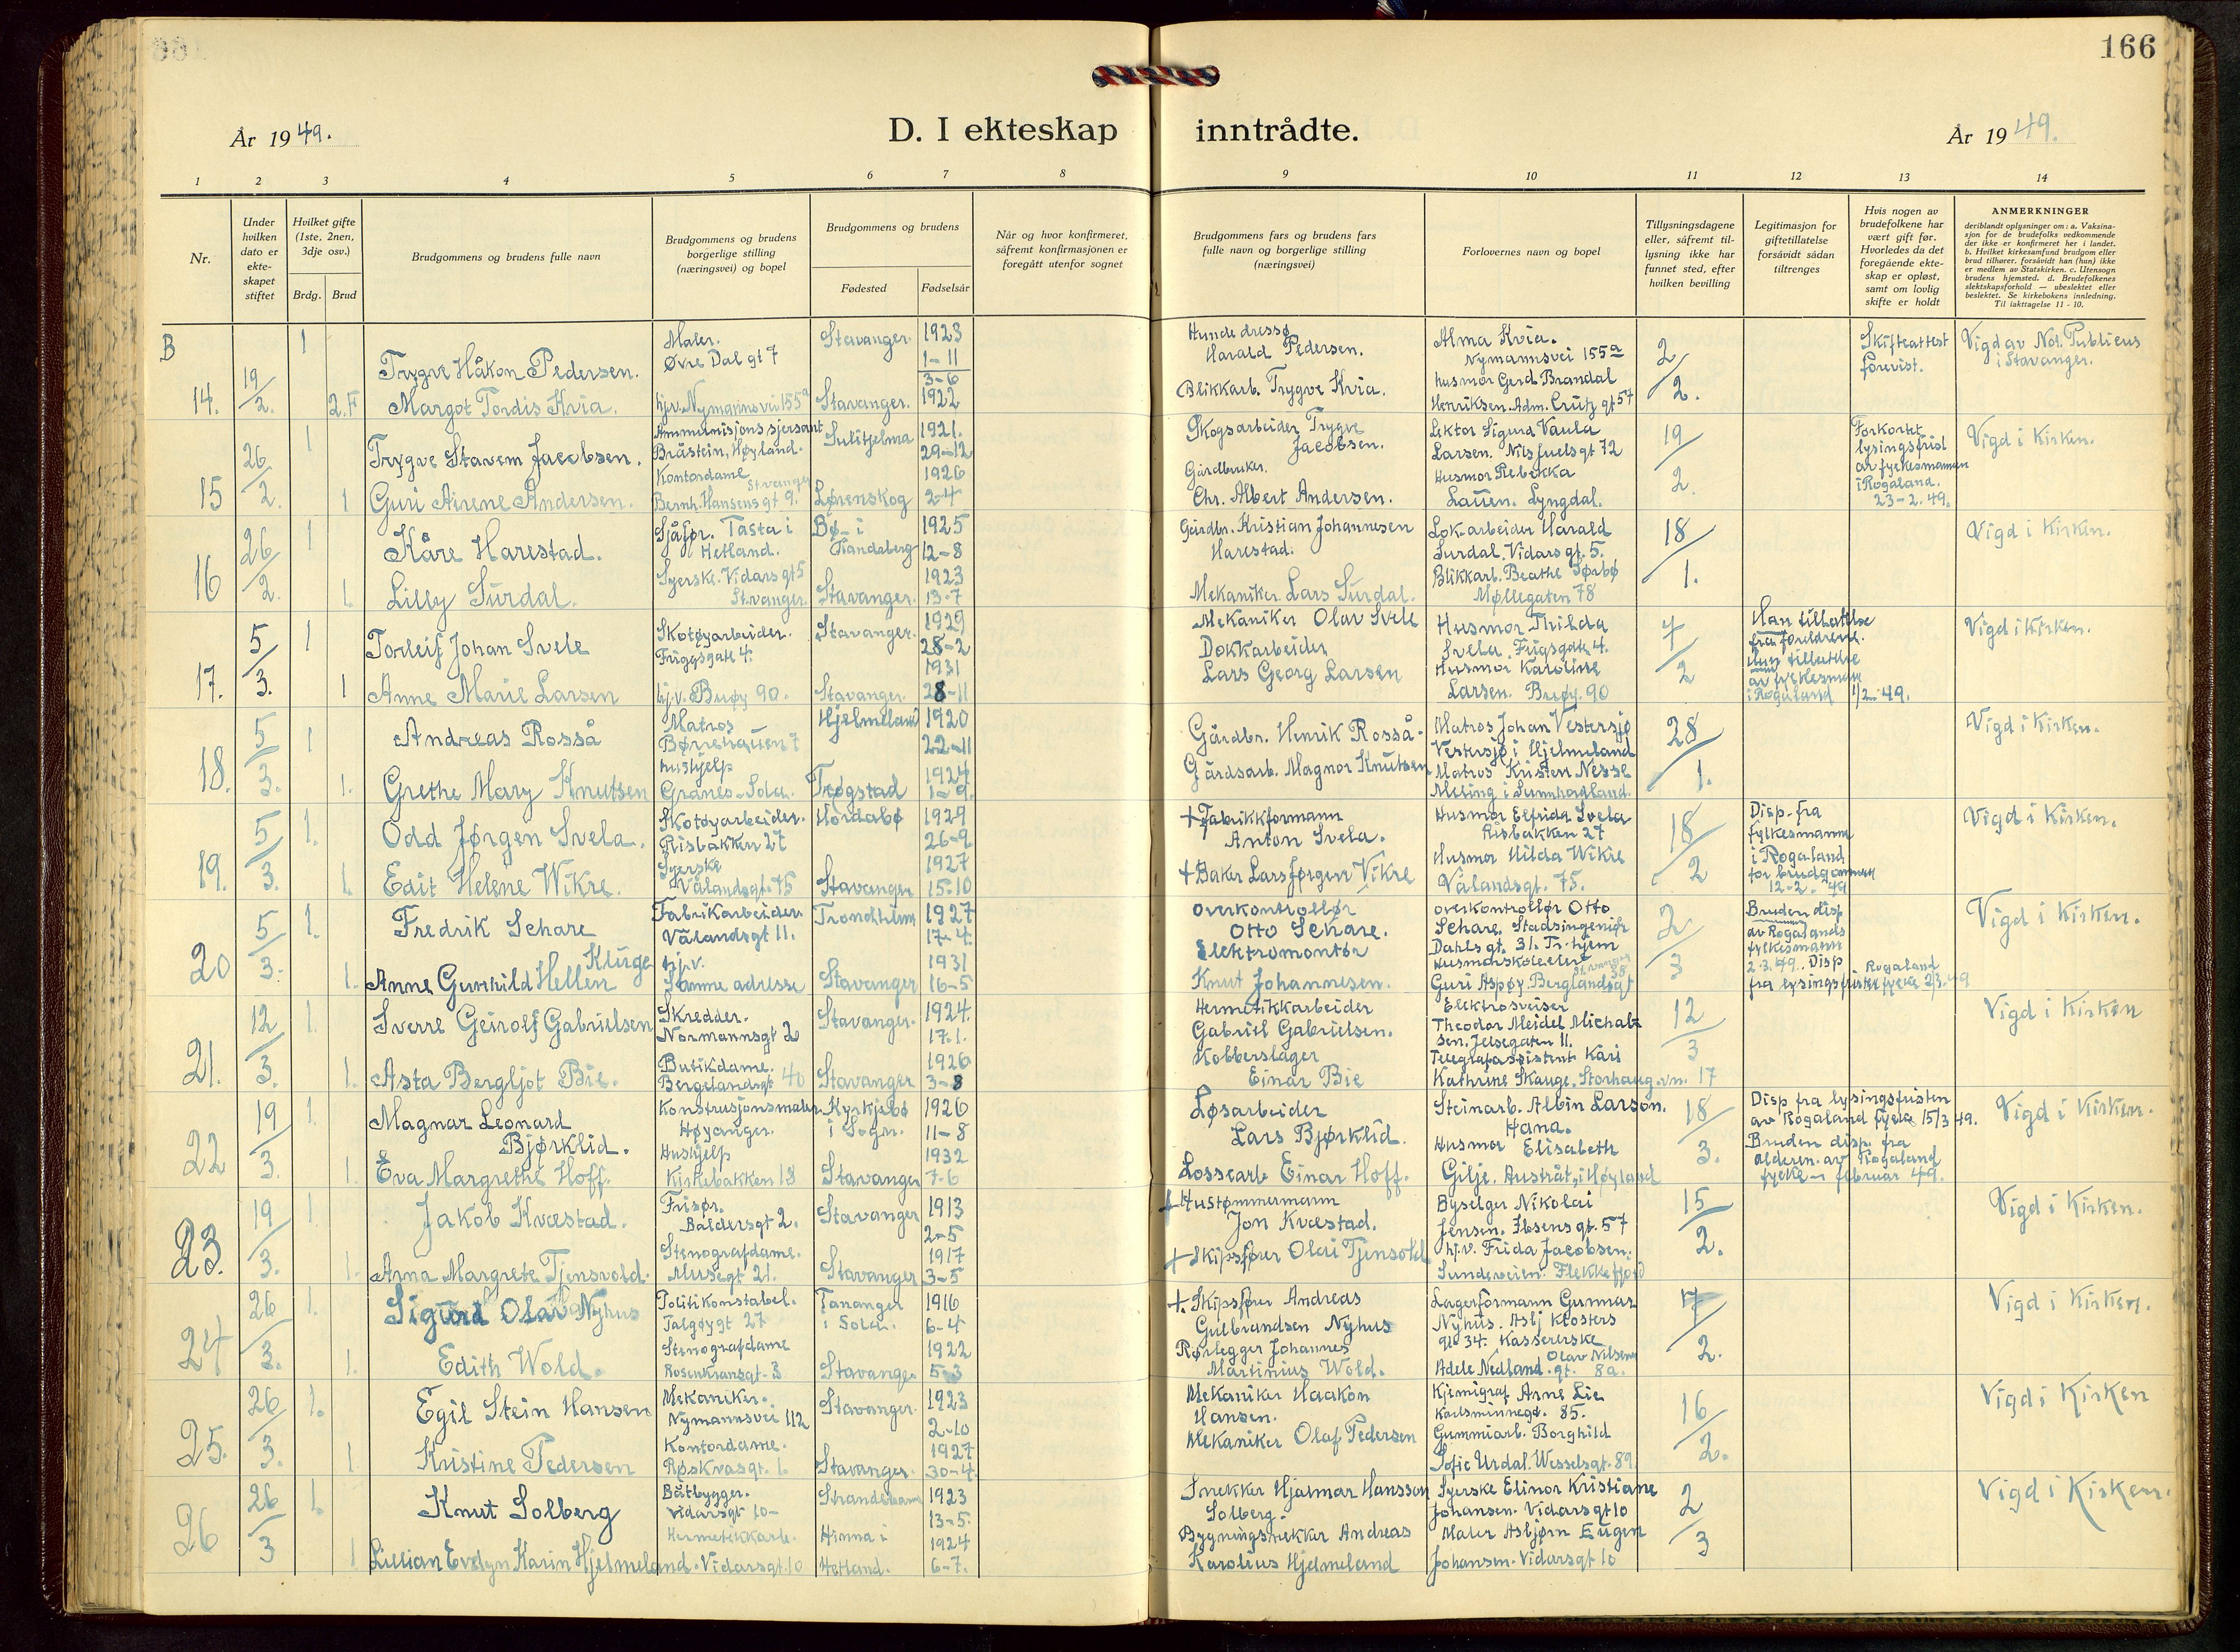 166
År 1949.
D. I ekteskap inntrådte.
År 1949.
1 2 3 4 5 6 7 8 9 10 11 12 13 14
Nr.
Under hvilken dato er ekte- skapet stiftet
Hvilket gifte (1ste, 2nen, 3dje osv.)
Brdg. Brud
Brudgommens og brudens fulle navn
Brudgommens og brudens borgerlige stilling (næringsvei) og bopel
Brudgommens og brudens
Fødested Fødselsår
Når og hvor konfirmeret, såfremt konfirmasjonen er foregått utenfor sognet
Brudgommens fars og brudens fars fulle navn og borgerlige stilling (næringsvei)
Forlovernes navn og bopel
Tillysningsdagene eller, såfremt til- lysning ikke har funnet sted, efter hvilken bevilling
Legitimasjon for giftetillatelse forsåvidt sådan tiltrenges
Hvis nogen av brudefolkene har vært gift før. Hvorledes da det foregående ekte- skap er opløst, samt om lovlig skifte er holdt
ANMERKNINGER
deriblandt oplysninger om: a. Vaksina- sjon for de brudefolks vedkommende der ikke er konfirmeret her i landet. b. Hvilket kirkesamfund brudgom eller brud tilhører, forsåvidt han (hun) ikke er medlem av Statskirken. c. Utensogn brudens hjemsted. d. Brudefolkenes slektskapsforhold — ubeslektet eller beslektet. Se kirkebokens innledning. Til iakttagelse 11 - 10.
B
14. 19/2. 1 Trygve Håkon Pedersen. Maler. Øvre Dal gt 7 Stavanger. 1923 1-11 Harald Pedersen. Alma Kvia. Nymannsvei 155a 2/2. Skifteattest forevist. Vigd av Not. Publicus i Stavanger.
2.F Margot Tordis Kvia. hjv. Nymannsvei 155a Stavanger. 3-6 1922 Blikkarb. Trygve Kvia. husmor Gerd Brandal Henriksen. Adm. Crutz gt 57
15 26/2. 1 Trygve Stavem Jacobsen. Ammunisjonssjersant Bråstein, Høyland. Sulitjelma 1921. 29-12 Skogsarbeider Trygve Jacobsen. Lektor Sigurd Vaula Larsen. Nils Juelsgt 72 19/2. Forkortet lysingsfrist av fylkesmannen i Rogaland. 23-2.49. Vigd i Kirken.
1 Guri Airene Andersen. Kontordame Bernh. Hansens gt 9. Stvanger Lørenskog 1926 2-4 Gårdbruker. Chr. Albert Andersen. Husmor Rebekka Lauen. Lyngdal.
16 26/2. 1 Kåre Harestad. Sjåfør. Tasta i Hetland. Bø i Randaberg 1925 12-8 Gårdbr. Kristian Johannesen Harestad. Lok.arbeider Harald Surdal. Vidarsgt. 5. 18/1. Vigd i Kirken.
1. Lilly Surdal. Syerske. Vidarsgt 5 Stvanger. Stavanger. 1923 13-7 Mekaniker. Lars Surdal. Blikkarb. Beathe Sørbø Møllegaten 78
17. 5/3. 1 Torleif Johan Svele Skotøyarbeider. Friggsgate 4. Stavanger. 1929 28-2 Mekaniker Olav Svele Husmor Thilda Svela. Frigsgate 4. 7/2 Han tillatelse fra foreldrene. Hun tillatelse av fylkesmann i Rogaland 1/2-49. Vigd i Kirken.
1 Anne Marie Larsen hjv. Buøy 90. Stavanger. 1931 28-11 Dokkarbeider Lars Georg Larsen Husmor Karoline Larsen. Buøy. 90
18. 5/3. 1 Andreas Rosså Matros Børehaugen 7 Hjelmeland 1920 22-11 Gårdbr. Henrik Rosså. Matros Johan Vestersjø Vestersjø i Hjelmeland 28/1. Vigd i Kirken.
1. Grethe Mary Knutsen hushjelp Granes-Sola. Trøgstad 1924 1-9. Gårdsarb. Magnor Knutsen Matros Kristen Nesse
19. 5/3. 1. Odd Jørgen Svela. Skotøyarbeider. Risbakken 27 Hordabø 1929 26-9 + Fabrikkformann Anton Svela. Husmor Elfrida Svela Risbakken 27 18/2 Disp. fra fylkesmannen i Rogaland for brudgommen 12-2. 49 Vigd i Kirken.
1. Edit Helene Wikre. Syerske Vålandsgt. 75 Stavanger 1927 15-10 + Baker Lars Jørgen Vikre Husmor Hilda Wikre Vålandsgt. 75.
20 5/3. 1. Fredrik Schare Fabrikarbeider. Vålandsgt 11. Trondheim 1927 17-4. Overkontrollør Otto Schare. overkontrollør Otto Schare. Stadsingeniør Dahls gt. 31. Tr.hjem 2/3 Bruden disp. av Rogalands fylkesmann 2.3.49. Disp fra lysingsfristen Rogaland fylke 2/3.49 Vigd i Kirken.
1. Anne Gunhild Hellen Kluge hj.v. Samme adresse Stavanger 1931 16-5 Elektromontør Knut Johannesen. Guri Aspøy. Berglandsgt 38
21. 12/3. 1. Sverre Geirolf Gabrielsen Skredder. Normannsgt 26 Stavanger. 1924. 17.1. Hermetikkarbeider Gabriel Gabrielsen. Elektrosveiser Theodor Meidel Michalsen. Jelsegaten 11. 12/3 Vigd i Kirken
1. Asta Bergljot Bie. Butikdame. Bergelandsgt 40 Stavanger 1926 3-8 Kobberslager Einar Bie Telegrafassistent Kari Kathrine Skauge. Storhaug.vn. 17
22 19/3. 1. Magnar Leonard Bjørklid. Konstrusjonsmaler Høyanger. Kyrkjebø i Sogn. 1926 11-8 Løsarbeider Lars Bjørklid. Steinarb. Albin Larson. Hana. 18/3. Disp fra lysingsfristen av Rogaland fylke 15/3 49. Bruden disp. fra alderen av Rogaland fylke - februar 49. Vigd i Kirken.
1. Eva Margrethe Hoff. Hushjelp Kirkebakken 18 Stavanger 1932 7-6 Lossearb Einar Hoff. Husmor Elisabeth Gilje. Austråt, i Høyland
23. 19/3. 1. Jakob Kvæstad. Frisør. Baldersgt 2. Stavanger 1913 2-5 + Hustømmermann Jon Kvæstad. Byselger Nikolai Jensen. Ibsensgt. 57 15/2. Vigd i Kirken.
1. Anna Margrete Tjensvold. Stenografdame. Musegt 21. Stavanger 1917 3-5 + Skipsfører Olai Tjensvold hj.v. Frida Jacobsen. Sundeveien. Flekkefjord
24 26/3. 1. Sigurd Olav Nyhus Politikonstabel. Talgøygt 27 Tananger i Sola. 1916 6-4 +. Skipsfører Andreas Gulbrandsen Nyhus Lagerformann Gunnar Nyhus. Aslj Klosters gt 34. 17/2. Vigd i Kirken.
1. Edith Wold. Stenografdame Rosenkransgt. 3 Stavanger 1922 5-3 Rørlegger Johannes Martinius Wold. Kassererske Adele Nedland. Olav Nilsens gt. 8a.
25. 26/3. 1. Egil Stein Hansen Mekaniker. Nymannsvei 112 Stavanger. 1923 2-10 Mekaniker Haakon Hansen. Kjemigraf Arne Lie Karlsminnegt. 85. 16/2. Vigd i Kirken
1. Kristine Pedersen Kontordame. Røskvasgt. 1. Stavanger. 1927 30-4 Mekaniker Olaf Pedersen Gummiarb. Borghild Sofie Urdal. Wesselsgt. 89.
26 26/3 1. Knut Solberg Båtbygger. Vidarsgt 10- 1923 13-5. Snekker Hjalmar Hansson Solberg. Syerske Elinor Kristiane Johansen. Vidarsgt 10 2/3 Vigd i Kirken.
1 Lillian Evelyn Karin Hjelmeland. Hermetikkarb. Vidarsgt. 10 Hinna i Hetland. 1924 6-7. Bygningssnekker Andreas Karolius Hjelmeland Maler Asbjørn Eugen Johansen. Vidarsgt 10